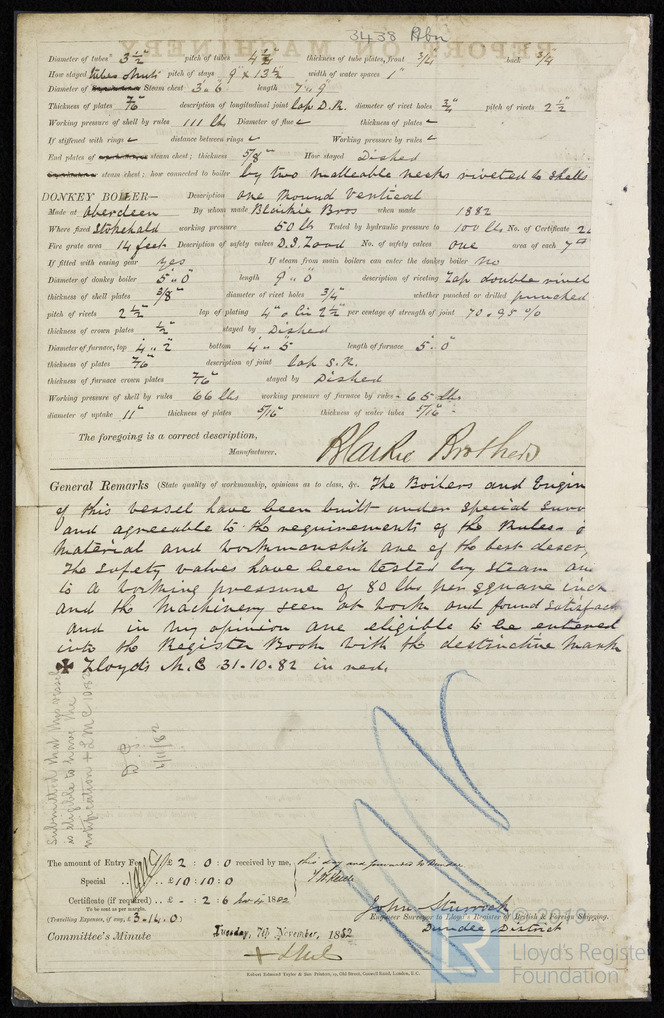 3438 Abn
Diameter of tubes 3 1/2" pitch of tubes 4 3/4 thickness of tube plates, front 3/4" back 3/4
How stayed Tubes & Nuts pitch of stays 9 x 13 1/2 width of water spaces 1"
Diameter of Steam chest 3' 6 length 7' 9"
Thickness of plates 7/16 description of longitudinal joint Lap D.R. diameter of rivet holes 3/4" pitch of rivets 2 1/2
Working pressure of shell by rules 111 lbs Diameter of flue thickness of plates
If stiffened with rings distance between rings Working pressure by rules
End plates of steam chest; thickness 5/8" How stayed Dished
steam chest; how connected to boiler by two malleable necks riveted to shells
DONKEY BOILER— Description One Round Vertical
Made at Aberdeen By whom made Blaikie Bros when made 1882
Where fixed Stokehold working pressure 50 lbs Tested by hydraulic pressure to 100 lbs No. of Certificate
Fire grate area 14 feet Description of safety valves No. of safety valves one area of each 7
If fitted with easing gear yes If steam from main boilers can enter the donkey boiler no
Diameter of donkey boiler 5' 0" length 9' 0 description of riveting Lap double rivet
thickness of shell plates 3/8" diameter of rivet holes 3/4" whether punched or drilled punched
pitch of rivets 2 1/2 lap of plating 4" & Cir 2 1/2 per centage of strength of joint 70.95 %
thickness of crown plates 1/2" stayed by Dished
Diameter of furnace, top 4' 2 bottom 4' 5 length of furnace 5' 0"
thickness of plates 7/16" description of joint Lap S.R.
thickness of furnace crown plates 7/16" stayed by Dished
Working pressure of shell by rules 66 lbs working pressure of furnace by rules 65 lbs
diameter of uptake 11" thickness of plates 5/16" thickness of water tubes 5/16"
The foregoing is a correct description,
Manufacturer. Blaikie Brothers
General Remarks (State quality of workmanship, opinions as to class, &c. The Boilers and Engin
of this vessel have been built under special surv
and agreeable to the requirements of the Rules
material and workmanship are of the best descr
The safety valves have been tested by steam an
to a working pressure of 80 lbs per square inch
and the Machinery seen at work and found satisfact
and in my opinion are eligible to be entered
into the Register Book with the distinctive Mark
✠ Lloyd's M.C 31-10-82 in red.
Submitted that this vessel
is eligible to have the
notification + LMC 10.82
4/11/82
The amount of Entry Fee £ 2 : 0 : 0 received by me, this day and forwarded to Dundee
Special £ 10 : 10 : 0
Certificate (if required) £ - : 2 : 6 1882
To be sent as per margin.
(Travelling Expenses, if any, £ 3-14.0)
John Sturrock
Engineer Surveyor to Lloyd's Register of British & Foreign Shipping.
Dundee District
Committee's Minute Tuesday, 7th November, 1882
Robert Edmund Taylor & Son Printers, 19, Old Street, Goswell Road, London, E.C.
LR
Lloyd's Register
Foundation